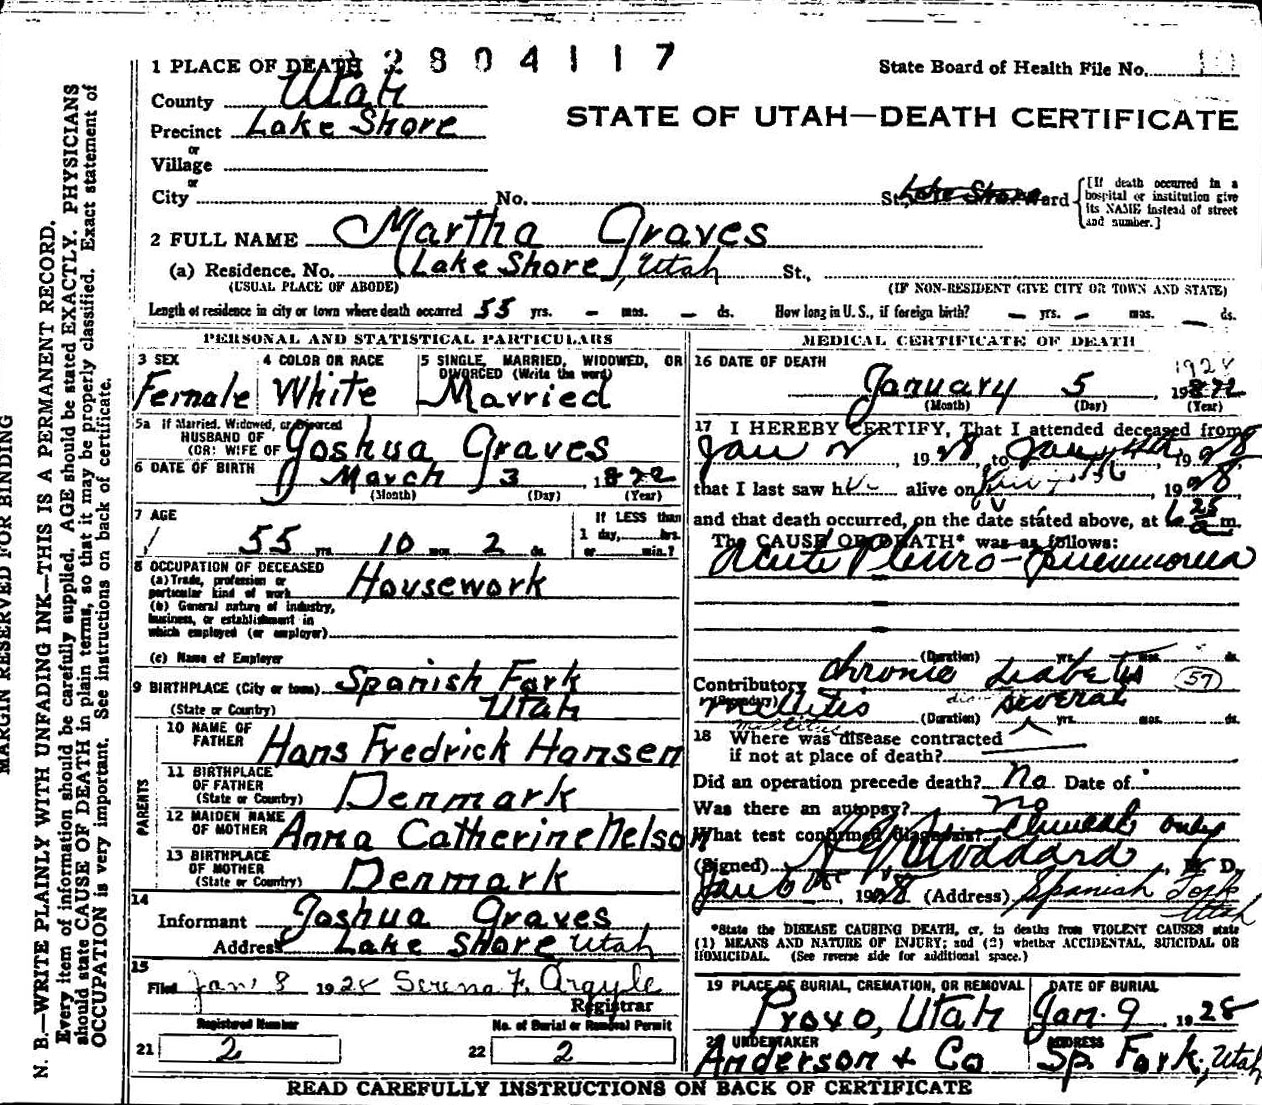 MARGIN RESERVED FOR BINDING
N. B.—WRITE PLAINLY WITH UNFADING INK—THIS IS A PERMANENT RECORD.
Every item of information should be carefully supplied. AGE should be stated EXACTLY. PHYSICIANS
should state CAUSE OF DEATH in plain terms, so that it may be properly classified. Exact statement of
OCCUPATION is very important. See instructions on back of certificate.
2804117
1 PLACE OF DEATH
State Board of Health File No.
County Utah
STATE OF UTAH—DEATH CERTIFICATE
Precinct Lake Shore
or
Village
or
City No. St., Lake Shore Ward
[If death occurred in a
hospital or institution give
its NAME instead of street
and number.]
2 FULL NAME Martha Graves
(a) Residence. No. (Lake Shore), Utah St.,
(USUAL PLACE OF ABODE) (IF NON-RESIDENT GIVE CITY OR TOWN AND STATE)
Length of residence in city or town where death occurred 55 yrs. - mos. - ds. How long in U. S., if foreign birth? - yrs. - mos. - ds.
PERSONAL AND STATISTICAL PARTICULARS
3 SEX 4 COLOR OR RACE 5 SINGLE, MARRIED, WIDOWED, OR
DIVORCED (Write the word)
Female White Married
5a If Married, Widowed, or Divorced
HUSBAND OF
(OR) WIFE OF Joshua Graves
6 DATE OF BIRTH March 3 1872
(Month) (Day) (Year)
7 AGE If LESS than
1 day, hrs.
55 yrs. 10 mos. 2 ds. or min.?
8 OCCUPATION OF DECEASED
(a) Trade, profession or
particular kind of work Housework
(b) General nature of industry,
business, or establishment in
which employed (or employer)
(c) Name of Employer
9 BIRTHPLACE (City or town) Spanish Fork
(State or Country) Utah
PARENTS
10 NAME OF
FATHER Hans Fredrick Hansen
11 BIRTHPLACE
OF FATHER
(State or Country) Denmark
12 MAIDEN NAME
OF MOTHER Anna Catherine Nelson
13 BIRTHPLACE
OF MOTHER
(State or Country) Denmark
14
Informant Joshua Graves
Address Lake Shore Utah
15
Filed Jan. 8 1928 Serena F. Argyle
Registrar
Registered Number No. of Burial or Removal Permit
21 2 22 2
MEDICAL CERTIFICATE OF DEATH
16 DATE OF DEATH 1928
January 5 1872
(Month) (Day) (Year)
17 I HEREBY CERTIFY, That I attended deceased from
Jan 2, 1928, to Jan 4th, 1928
that I last saw her alive on Jan, 1928
and that death occurred, on the date stated above, at 1 25 a m.
The CAUSE OF DEATH* was as follows:
Acute Pleuro-pneumonia
(Duration) yrs. mos. ds.
Contributory chronic diabetis (57)
(Secondary) mellitis several
mellitus
(Duration) yrs. mos. ds.
18 Where was disease contracted
if not at place of death?
Did an operation precede death? No Date of
Was there an autopsy? no
What test confirmed diagnosis? clinical only
(Signed) Stoddard, M. D.
Jan 6, 1928 (Address) Spanish Fork
Utah
*State the DISEASE CAUSING DEATH, or, in deaths from VIOLENT CAUSES state
(1) MEANS AND NATURE OF INJURY; and (2) whether ACCIDENTAL, SUICIDAL OR
HOMICIDAL. (See reverse side for additional space.)
19 PLACE OF BURIAL, CREMATION, OR REMOVAL DATE OF BURIAL
Provo, Utah Jan. 9, 1928
20 UNDERTAKER ADDRESS
Anderson + Co Sp. Fork, Utah
READ CAREFULLY INSTRUCTIONS ON BACK OF CERTIFICATE